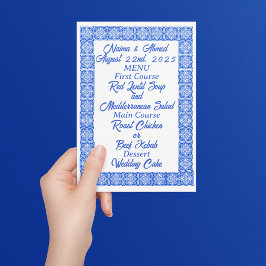 Naima & Ahmed
August 22nd, 2025
MENU
First Course
Red Lentil Soup
and
Mediterranean Salad
Main Course
Roast Chicken
or
Beef Kebab
Dessert
Wedding Cake